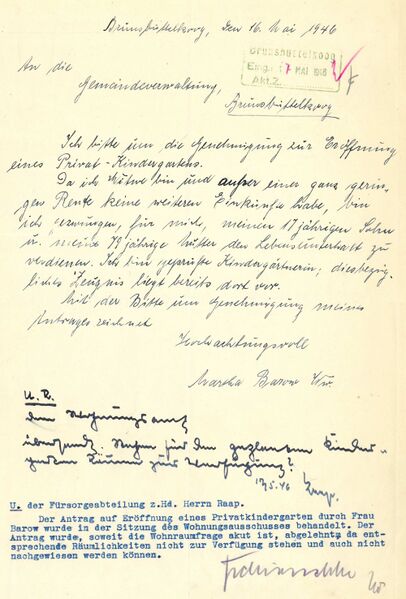 Brunsbüttelkoog, den 16. Mai 1946
Brunsbüttelkoog
Eing.: 17. MAI 1946
Akt.Z.
An die
Gemeindeverwaltung,
Brunsbüttelkoog
Ich bitte um die Genehmigung zur Eröffnung
eines Privat-Kindergartens.
Da ich Witwe bin und außer einer ganz gerin-
gen Rente keine weiteren Einkünfte habe, bin
ich gezwungen, für mich, meinen 17 jährigen Sohn
u. meine 79 jährige Mutter den Lebensunterhalt zu
verdienen. Ich bin geprüfte Kindergärtnerin, diesbezüg-
liches Zeugnis liegt bereits dort vor.
Mit der Bitte um Genehmigung meines
Antrages zeichnet
Hochachtungsvoll
Martha Barow Ww.
U. R.
dem Wohnungsamt
übersandt. Stehen für den geplanten Kinder-
garten Räume zur Verfügung?
17.5.46
U. der Fürsorgeabteilung z.Hd. Herrn Raap.
Der Antrag auf Eröffnung eines Privatkindergarten durch Frau
Barow wurde in der Sitzung des Wohnungsausschusses behandelt. Der
Antrag wurde, soweit die Wohnraumfrage akut ist, abgelehnt, da ent-
sprechende Räumlichkeiten nicht zur Verfügung stehen und auch nicht
nachgewiesen werden können.